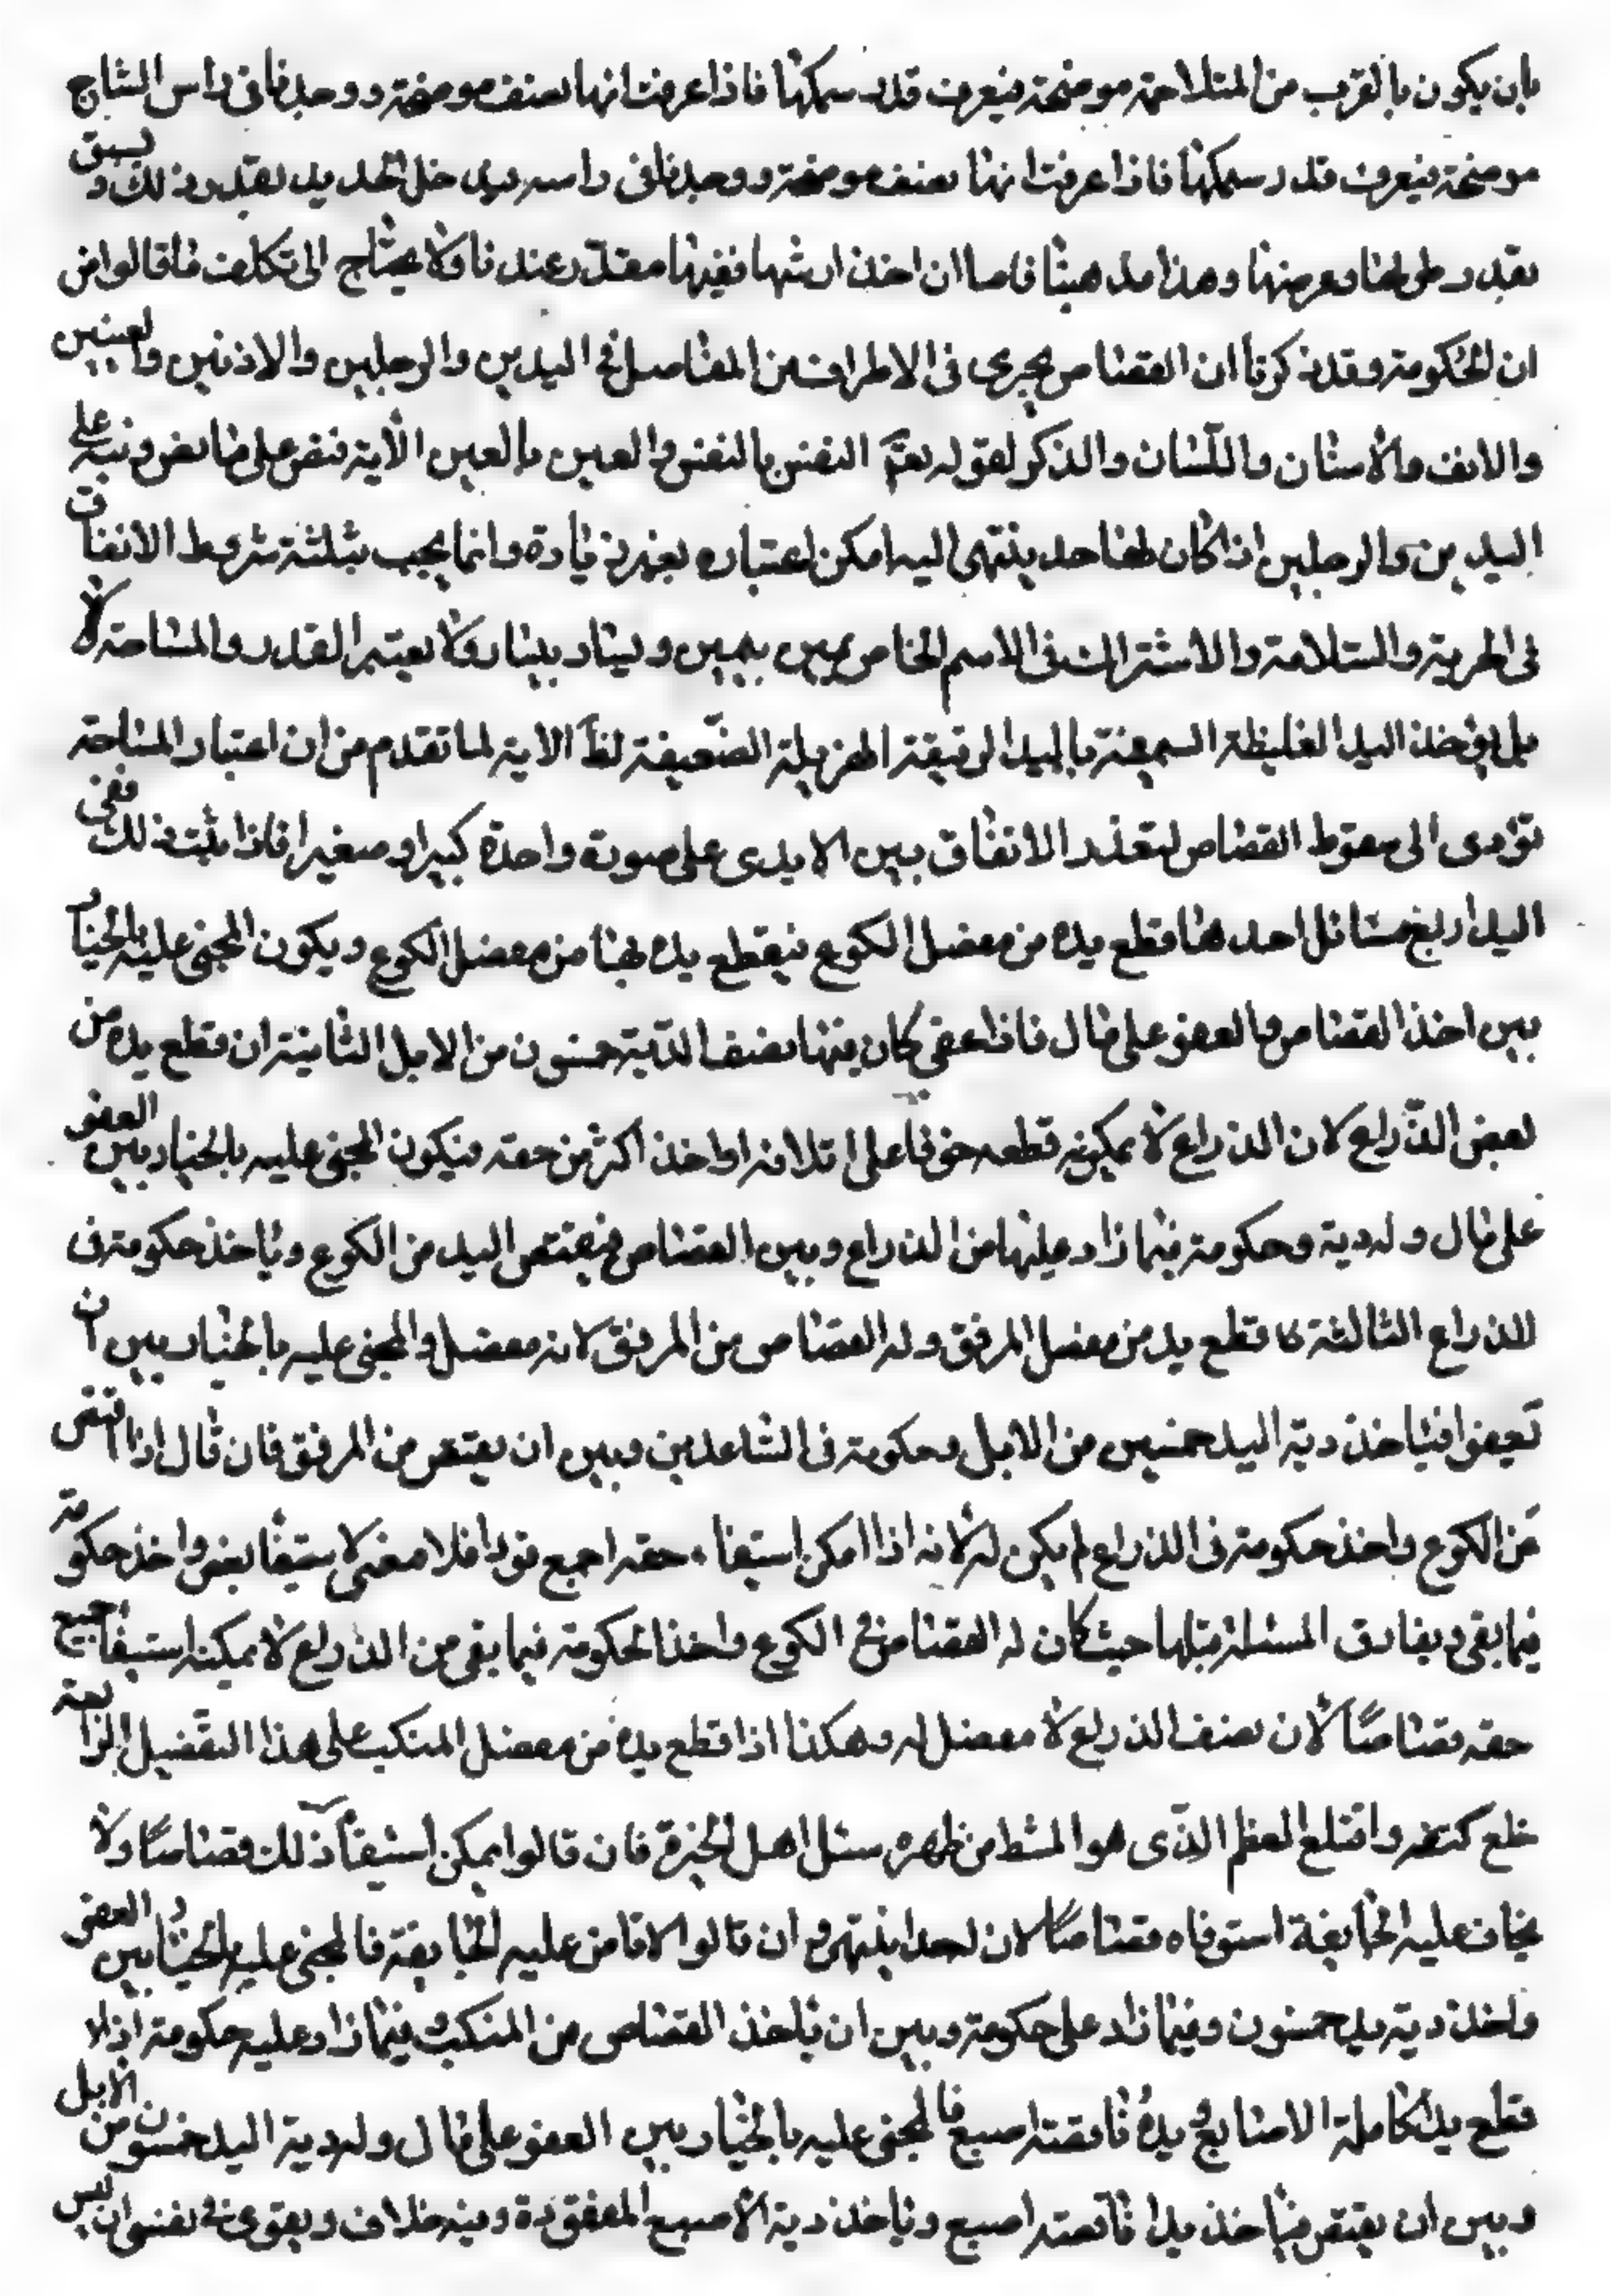 بان يكون بالقرب من المتلاحمة موضحة فيعرف قدر سمكها فاذا عرفت انها نصف موضحة ووجدنا في راس الشاج
موضحة فيعرف قدر سمكها فاذا عرفت انها نصف موضحة ووجدنا في راسه دخل الحديد بقدر ذلك ويشق
بقدر طولها وعرضها وهذا مذهبنا فاما ان اخذ ارشها ففيها مقدر عندنا فلا يحتاج الى تكلف ما قالوا من
ان الحكومة وقد ذكرنا ان القصاص يجرى في الاطراف من المفاصل في اليدين والرجلين والاذنين والعينين
والانف والاسنان واللسان والذكر لقوله تعم النفس بالنفس والعين بالعين الآية فنص على ما نص ونبه على
اليدين والرجلين اذا كان لها حد ينتهى اليه امكن اعتباره بغير زيادة وانما يجب بثلثة شروط الاتفاق
في الحرية والسلامة والاشتراك في الاسم الخاص يمين بيمين ويسار بيسار ولا يعتبر القدر والمساحة لا
بل يؤخذ اليد الغليظة السمينة باليد الرقيقة الهزيلة الضعيفة لظ الاية لما تقدم من ان اعتبار المساحة
تؤدى الى سقوط القصاص لتعذر الاتفاق بين الايدى على صورة واحدة كبيرا وصغيرا فاذا ثبت ذلك ففى
اليد اربع مسائل احدها قطع يده من مفصل الكوع فيقطع يده بها من مفصل الكوع ويكون المجنى عليه بالخيار
بين اخذ القصاص والعفو على مال فاذا عفى كان فيها نصف الدية خمسون من الابل الثانية ان قطع يده من
بعض الذراع لان الذراع لا يمكنه قطعه خوفا على اتلافه او اخذ اكثر من حقه فيكون المجنى عليه بالخيار بين العفو
على مال وله دية وحكومة فيما زاد عليها من الذراع وبين القصاص فيقتص اليد من الكوع وياخذ حكومة في
الذراع الثالثة قطع يد من مفصل المرفق وله القصاص من المرفق لانه مفصل والمجنى عليه بالخيار بين ان
تعفوا فياخذ دية اليد خمسين من الابل وحكومة في الساعدين وبين ان يقتص من المرفق فان قال اذا اقتص
من الكوع واخذ حكومة في الذراع لم يكن له لانه اذا امكن استيفاء حقه اجمع قودا فلا معنى لاستيفا بعض واخذ حكومة
فيما بقى ويفارق المسئلة قبلها حيث كان له القصاص في الكوع واخذ الحكومة فيما بقى من الذراع لا يمكنه استيفا جميع
حقه قصاصا لان نصف الذراع لا مفصل له وهكذا اذا قطع يده من مفصل المنكب على هذا التفصيل الرابعة
خلع كتفه واقتلع العظم الذى هو المشط من ظهره سئل اهل الخبرة فان قالوا يمكن استيفا ذلك قصاصا ولا
يخاف عليه الجايفة استوفاه قصاصا لان له حدا ينتهى وان قالوا لا نامن عليه الجايفة فالمجنى عليه بالخيار بين العفو
واخذ دية يد خمسون وفيما زاد على حكومة وبين ان ياخذ القصاص من المنكب وفيما زاد عليه حكومة اذا
قطع يدا كاملة الاصابع ويده ناقصة اصبع فالمجنى عليه بالخيار بين العفو على مال وله دية اليد خمسون من الابل
وبين ان يقتص فياخذ يدا ناقصة اصبع وياخذ دية الاصبع المفقودة وفيه خلاف ويقوى في نفسى ان ليس